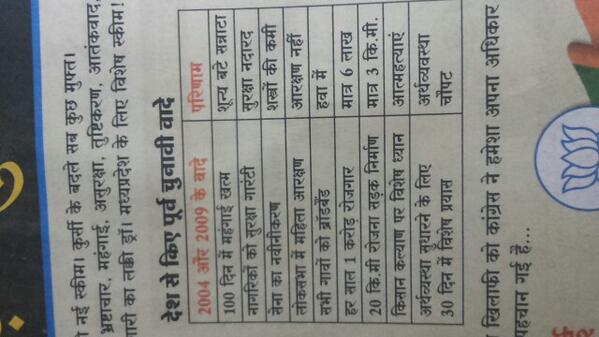 नई स्कीम। कुर्सी के बदले सब कुछ मुफ्त।
भ्रष्टाचार, महंगाई, असुरक्षा, तुष्टिकरण, आतंकवाद,
का लकी ड्रॉ। मध्यप्रदेश के लिए विशेष स्कीम!
देश से किए पूर्व चुनावी वादे
2004 और 2009 के वादे परिणाम
100 दिन में महंगाई खत्म शून्य बटे सन्नाटा
नागरिकों को सुरक्षा गारंटी सुरक्षा नदारद
सेना का नवीनीकरण शस्त्रों की कमी
लोकसभा में महिला आरक्षण आरक्षण नहीं
सभी गावों को ब्रॉडबैंड हवा में
हर साल 1 करोड़ रोजगार मात्र 6 लाख
20 कि.मी रोजना सड़क निर्माण मात्र 3 कि.मी.
किसान कल्याण पर विशेष ध्यान आत्महत्याएं
अर्थव्यवस्था सुधारने के लिए अर्थव्यवस्था
30 दिन में विशेष प्रयास चौपट
खिलाफी को कांग्रेस ने हमेशा अपना अधिकार
पहचान गई है...